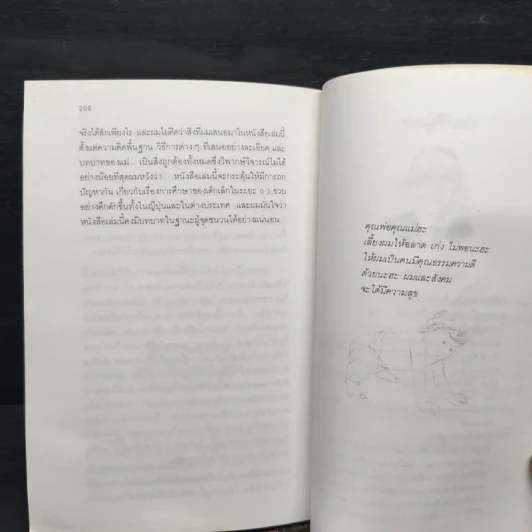 200
จริงได้สักเพียงไร และผมไม่คิดว่าสิ่งที่ผมเสนอมาในหนังสือเล่มนี้
ตั้งแต่ความคิดพื้นฐาน วิธีการต่างๆ ที่เสนออย่างละเอียด และ
บทบาทของแม่ เป็นสิ่งถูกต้องทั้งหมดซึ่งวิพากษ์วิจารณ์ไม่ได้
อย่างน้อยที่สุดผมหวังว่า หนังสือเล่มนี้จะกระตุ้นให้มีการถก
ปัญหากัน เกี่ยวกับเรื่องการศึกษาของเด็กเล็กในระยะ 0-3 ขวบ
อย่างคึกคักขึ้นทั้งในญี่ปุ่นและในต่างประเทศ และผมมั่นใจว่า
หนังสือเล่มนี้คงมีบทบาทในฐานะผู้จุดชนวนได้อย่างแน่นอน
คุณพ่อคุณแม่ฮะ
เลี้ยงผมให้ฉลาด เก่ง ไม่พอนะฮะ
ให้ผมเป็นคนมีคุณธรรมความดี
ด้วยนะฮะ ผมและสังคม
จะได้มีความสุข